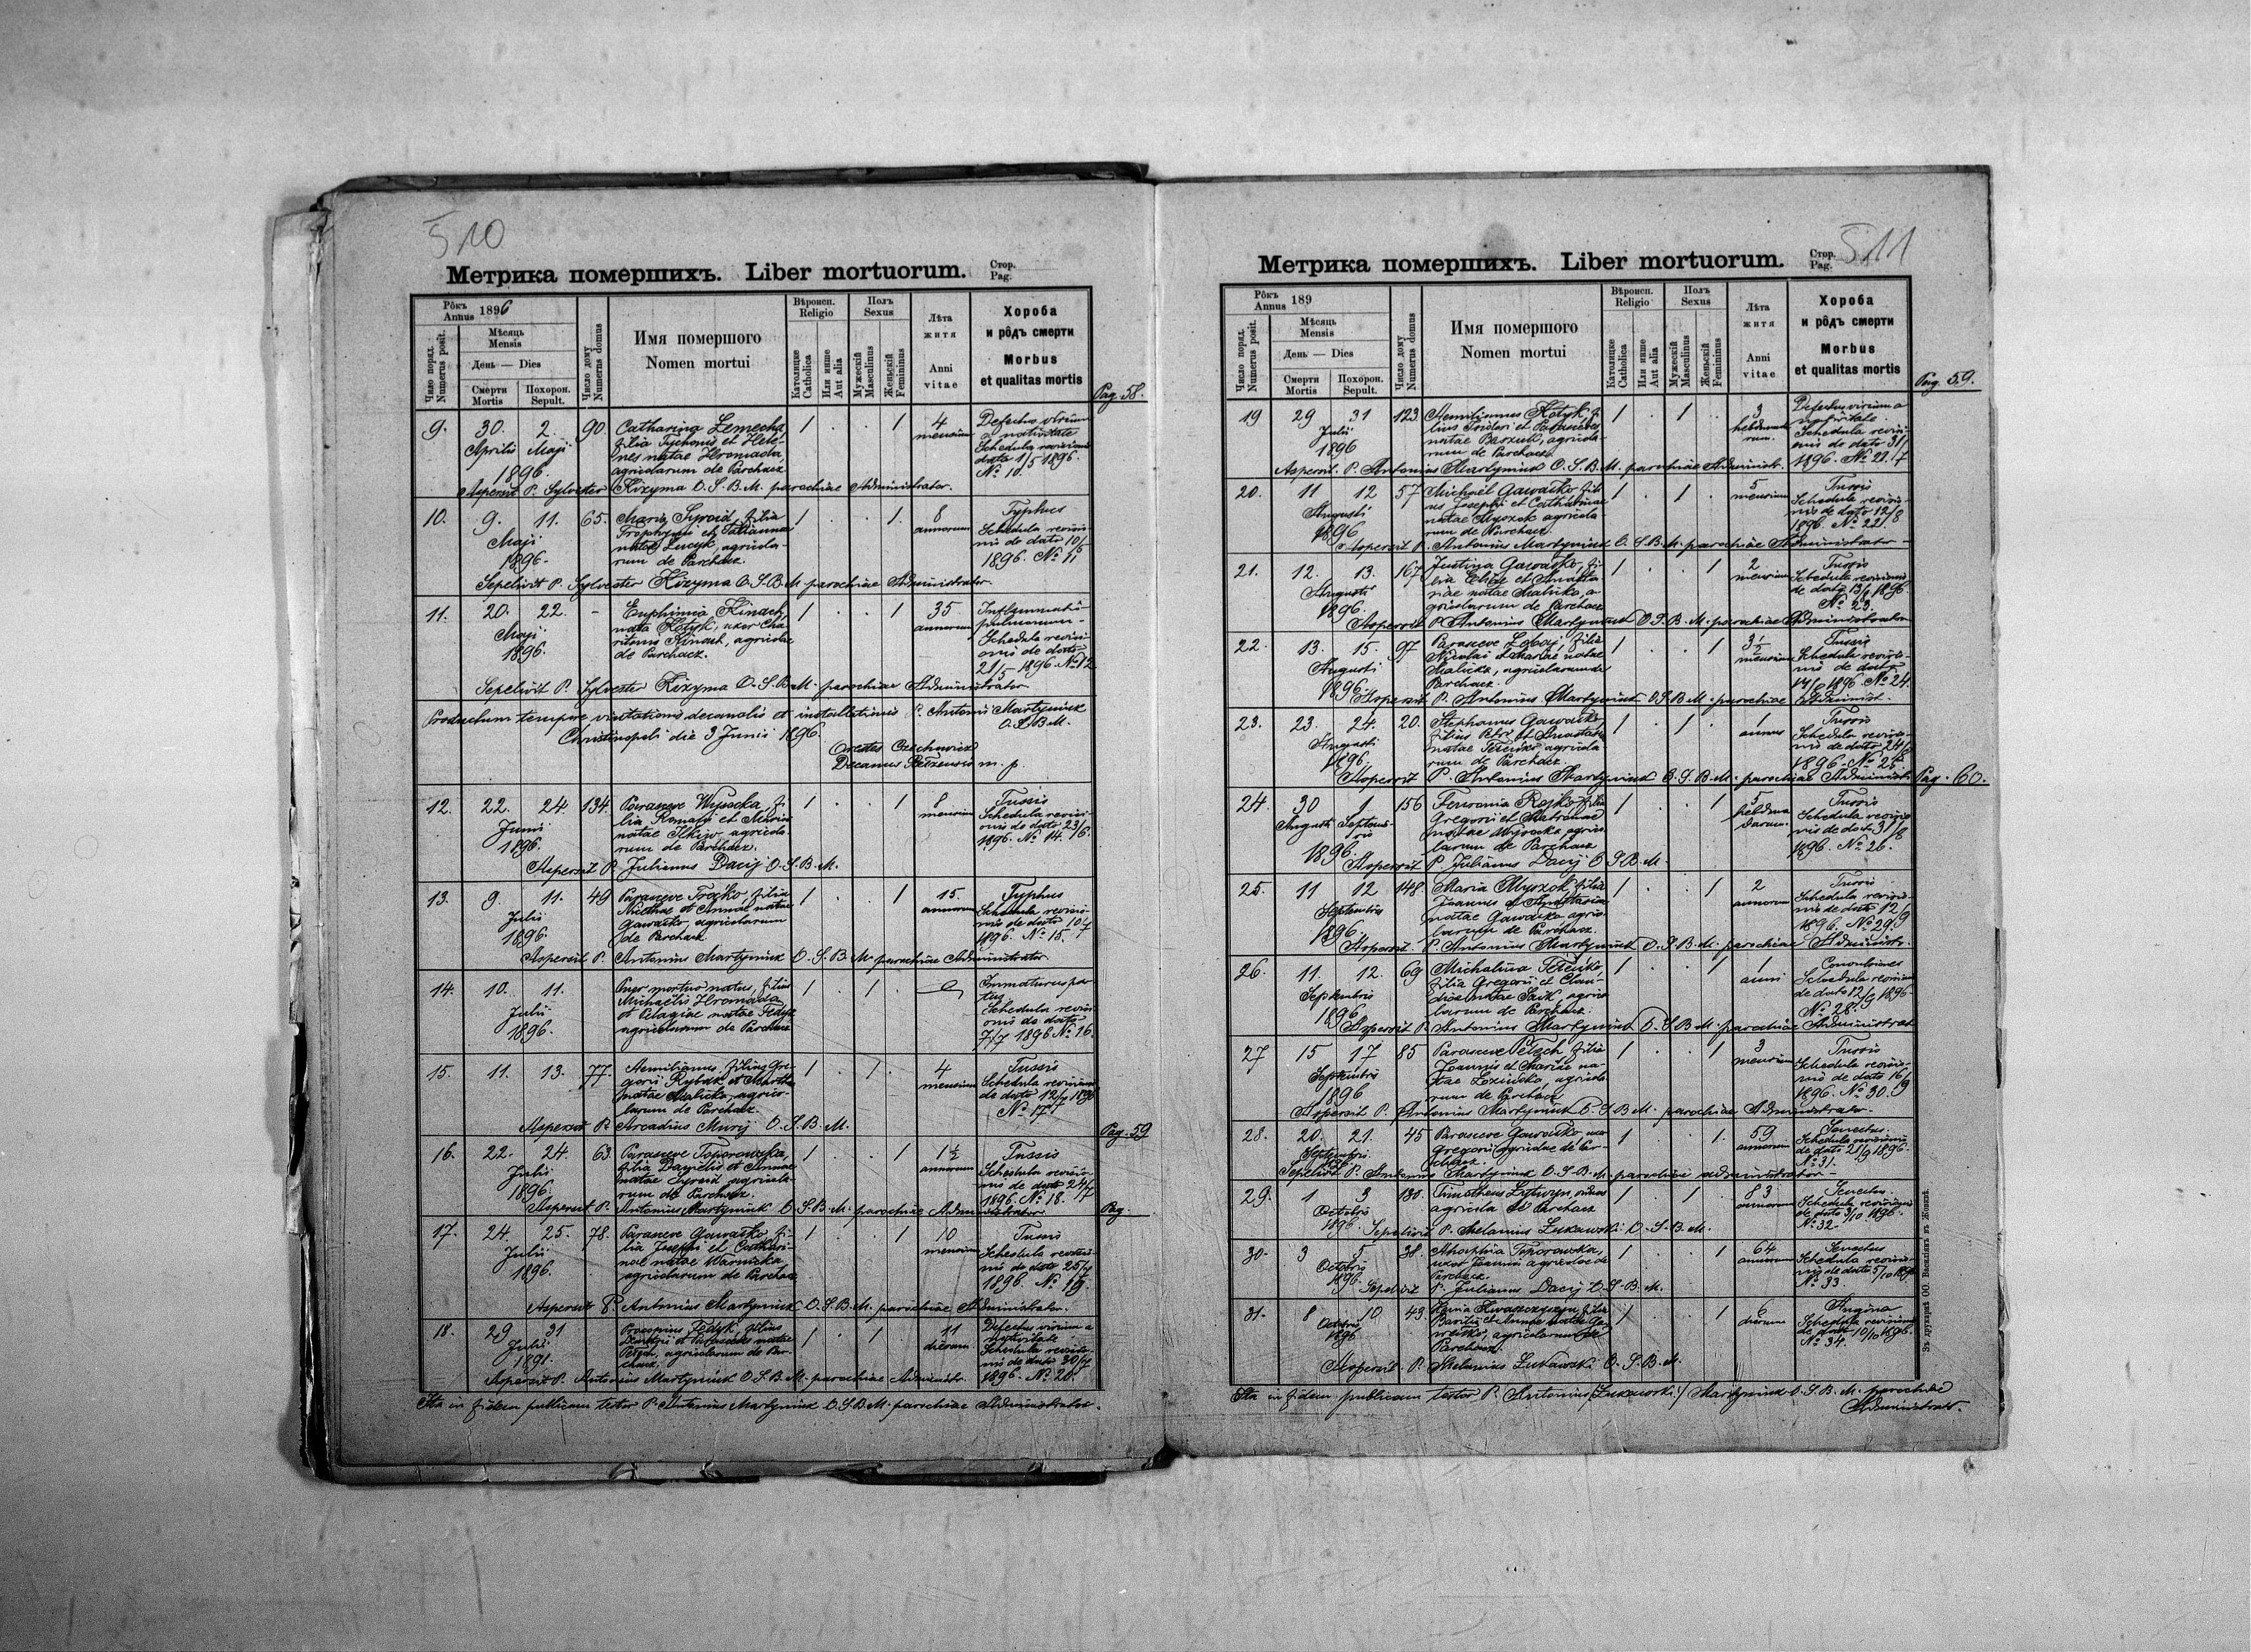 510
Метрика помершихъ. Liber mortuorum.
Стор.
Pag.
Рôкъ
Annus 1896
Число поряд.
Numerus posit.
Мѣсяць
Mensis
День — Dies
Смерти
Mortis
Похорон.
Sepult.
Число дому
Numerus domus
Имя помершого
Nomen mortui
Вѣроисп.
Religio
Католицке
Catholica
Или инше
Aut alia
Полъ
Sexus
Мужескій
Masculinus
Женьскій
Femininus
Лѣта
житя
Anni
vitae
Хороба
и рôдъ смерти
Morbus
et qualitas mortis
Pag. 58.
9. 30. 2. 90. Catharina Lemecha 1 . . 1 4 Defectus virium
Aprilis Maji filia Tychonis et Hele- mensium a nativitate
nes natae Hromada, Schedula revisionis
1896. agricolarum de Parchacz dato 1/5 1896.
No 10.
Aspersit P. Sylvester Kizyma O. S. B. M. parochiae Administrator.
10. 9. 11. 65. Maria Syroid filia 1 . . 1. 8 Typhus
Maji Trophymi et Tatianna annorum Schedula revisio-
natae Lucyk, agricola- nis de dato 10/5
1896. rum de Parchacz. 1896. No 11
Sepelivit P. Sylvester Kizyma O. S. B. M parochiae Administrator.
11. 20. 22. - Euphimia Kinach, 1 . . 1 35 Inflammatio
Maji nata Kotyk, uxor Cha- annorum pulmonum -
1896. ritonis Kinach, agricolae Schedula revisi-
de Parchacz. onis de dato
21/5 1896. No 12
Sepelivit P. Sylvester Kizyma O. S. B. M. parochiae Administrator
Productum tempore visitationis decanalis et installationis P. Antonii Martyniuk
O. S. B. M.
Christinopoli die 3 Junii 1896.
Orestes Czechowicz
Decanus Belzensis m. p.
12. 22. 24. 134. Parasceve Wysocka, fi- 1 . . 1 8 Tussis
Junii lia Romani et Maria mensium Schedula revisi-
1896. natae Ilkiw, agricola- onis de dato 23/6
rum de Parchacz. 1896. No 14.
Aspersit P. Julianus Dacij O. S. B. M.
13. 9. 11. 49 Parasceve Trojko, filia 1 . . 1 15. Typhus
Julii Nicetae et Annae natae annorum Schedula revisio-
Gawaśko, agricolarum nis de dato 10/7
1896. de Parchacz 1896. No 15.
Aspersit P. Antonius Martyniuk O. S. B. M parochiae Administrator
14. 10. 11. Puer mortuo natus, filius 1 . 1 . Immaturus par-
Julii Michaëlis Hromada tus
1896. et Pelagiae natae Fedyk Schedula revisi-
agricolarum de Parchacz onis de dato
7/7 1896 No 16.
15. 11. 13. 77. Aemilianus, filius Gre- 1 . 1 . 4 Tussis
gorii Rybak et Martha mensium Schedula revisionis
natae Malicka, agrico- de dato 12/7 1896
larum de Parchacz. No 17
Aspersit P. Arcadius Murij O. S. B. M.
Pag. 59
16. 22. 24. 63. Parasceve Toporowska, 1 . . 1 1 1/2 Tussis
Julii filia Danielis et Annae annorum Schedula revisio-
1896. natae Syroid agricola- nis de dato 24/7
rum de Parchacz. 1896. No 18.
Aspersit P. Antonius Martyniuk O. S. B. M. parochiae Administrator
Pag
17. 24. 25. 78. Parasceve Gawaśko, fi- 1 . . 1 10 Tussis
Julii lia Josephi et Cathari- mensium Schedula revisio-
1896. nae natae Warnicka nis de dato 25/7
agricolarum de Parchacz 1896. No 19.
Aspersit P. Antonius Martyniuk O. S. B. M. parochiae Administrator.
18. 29 31 Procopius Fedyk, filius 1 . 1 11 Defectus virium a
Julii et Parasceves natae dierum. nativitate
1891. Petech, agricolarum de Par- Schedula revisio-
chacz. nis de dato 30/7
1896. No 20.
Aspersit P. Antonius Martyniuk O. S. B. M. parochiae Administr.
Ita in fidem publicam testor P. Antonius Martyniuk O. S. B. M. parochiae Administrator.
511
Метрика помершихъ. Liber mortuorum.
Стор.
Pag.
Рôкъ
Annus 189
Число поряд.
Numerus posit.
Мѣсяць
Mensis
День — Dies
Смерти
Mortis
Похорон.
Sepult.
Число дому
Numerus domus
Имя помершого
Nomen mortui
Вѣроисп.
Religio
Католицке
Catholica
Или инше
Aut alia
Полъ
Sexus
Мужескій
Masculinus
Женьскій
Femininus
Лѣта
житя
Anni
vitae
Хороба
и рôдъ смерти
Morbus
et qualitas mortis
Pag. 59.
19 29 31 123 Aemilianus Kotyk, fi- 1 . 1 . 3 Defectus virium a
Julii lius Isidori et Parasceves hebdoma- nativitate.
1896 natae Barzuk, agricola- rum. Schedula revisi-
rum de Parchacz. onis de dato 31/7
1896. No 21.
Aspersit. P. Antonius Martyniuk O. S. B. M. parochiae Administr.
20. 11 12 57 Michaël Gawaśko, fili- 1 . 1 . 5 Tussis
Augusti us Josephi et Catharinae mensium Schedula revisio-
1896 natae Myszok agricola nis de dato 12/8
rum de Parchacz. 1896. No 22.
Aspersit P. Antonius Martyniuk O. S. B. M. parochiae Administrator -
21. 12. 13. 167 Justina Gawaśko, fi- 1 . . 1 2 Tussis
Augusti lia Eliae et Anasta- mensium Schedula revisionis
1896. siae natae Malicka, a- de dato 13/8 1896.
gricolarum de Parchacz No 23.
Aspersit P. Antonius Martyniuk O. S. B. M. parochiae Administrator
22. 13. 15. 97 Parasceve Lobaj, filia 1 . . 1 3 1/2 Tussis
Augusti Nicolai et Mariae natae mensium Schedula revisio-
Malicka, agricolarum de nis de dato
1896. Parchacz. 14/8 1896. No 24.
Aspersit P. Antonius Martyniuk O. S. B. M. parochiae Administ.
23. 23. 24. 20. Stephanus Gawaśko, 1 . 1 . 1 Tussis
Augusti filius Petri et Anastasiae annus Schedula revisio-
1896. natae Tereńko, agricola nis de dato 24/8
rum de Parchacz. 1896. No 25.
Aspersit P. Antonius Martyniuk O. S. B. M. parochiae Administ.
Pag. 60.
24 30 1. 156 Fewronia Rojko filia 1 . . 1 5 Tussis
Augusti Septem- Gregorii et Matronae hebdoma- Schedula revisio-
bris natae Wysocka, agrico- darum. nis de dato 31/8
1896. larum de Parchacz 1896. No 26.
Aspersit P. Julianus Dacij O. S. B. M.
25. 11 12 148 Maria Myszok filia 1 . . 1 2 Tussis
Septembris Joannis et Anastasiae annorum Schedula revisio-
natae Gawaśko agrico- nis de dato 12/9
1896. larum de Parchacz. 1896. No 29.
Aspersit. P. Antonius Martyniuk O. S. B. M. parochiae Administr.
26. 11. 12. 69 Michalina Tereńko, 1 . . 1 1 Convulsiones
Septembris filia Gregorii et Clau- anni Schedula revisionis
diae natae Saik, agrico- de dato 12/9 1896.
1896 larum de Parchacz. No 28.
Aspersit P. Antonius Martyniuk O. S. B. M. parochiae Administrat
27 15 17 85 Parasceve Petech, filia 1 . . 1 3 Tussis
Septembris Joannis et Mariae na- mensium Schedula revisio-
tae Lozińska, agricola nis de dato 16/9
1896 rum de Parchacz 1896. No 30.
Aspersit P. Antonius Martyniuk O. S. B. M. parochiae Administrator.
28. 20. 21. 45 Parasceve Gawaśko uxor 1 . . 1. 59 Senectus.
Septembris Gregorii agricolae de Par- annorum Schedula revisionis
1896 chacz. de dato 21/9 1896.
No 31.
Sepelivit P. Antonius Martyniuk O. S. B. M. parochiae administrator -
29. 1 3 130. Timotheus Lytwyn, viduus 1 . 1 . 83 Senectus.
Octobris agricola de Parchacz annorum Schedula revisionis
de dato 3/10 1896.
1896. Sepelivit P. Melanius Lukawski O. S. B. M. No 32.
30. 3 5 38. Toporowska, 1 . . 1 64 Senectus
Octobris uxor Joannis agricolae de annorum Schedula revisio-
1896. Parchacz. nis de dato 5/10 1896
No 33.
Sepelivit P. Julianus Dacij O. S. B. M.
31. 8 10 43. Xenia filia 1 . . 1 6 Angina
Octobris Basilii et Annae natae Ga- dierum Schedula revisionis
1896 waśko, agricolarum de de dato 10/10 1896.
Parchacz. No 34.
Aspersit. P. Melanius Lukawski O. S. B. M.
Ita in fidem publicam testor P. Antonius /Lukawski/ Martyniuk O. S. B. M. parochiae
Administrator.
Зъ друкарнѣ ОО. Василіянъ въ Жовквѣ.